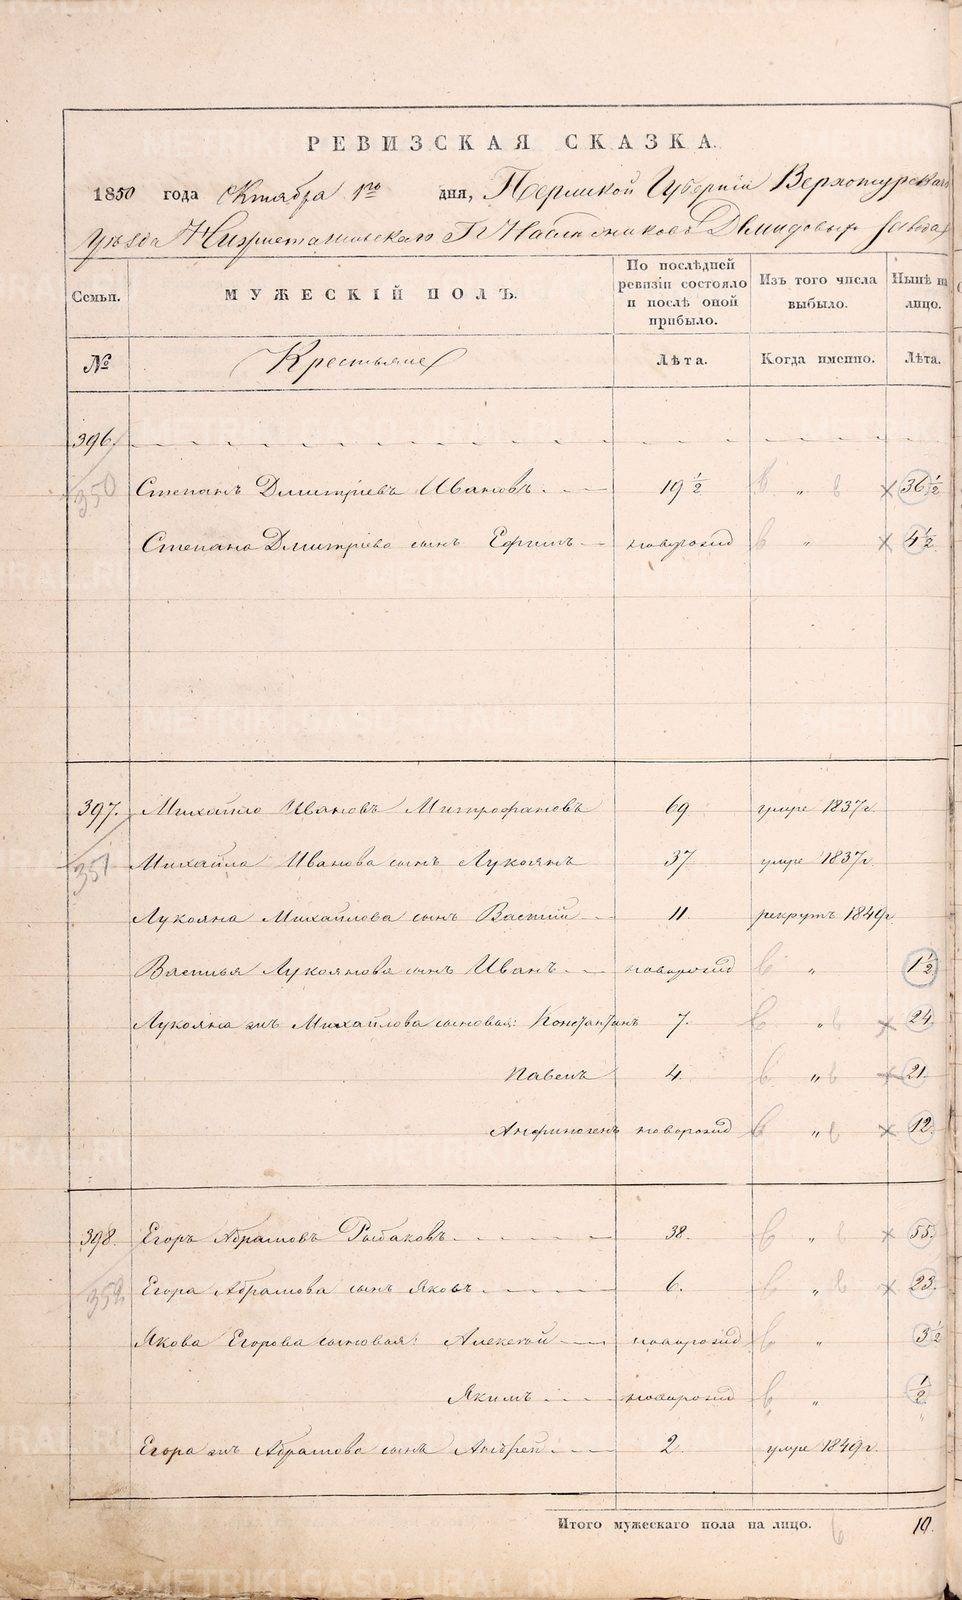 РЕВИЗСКАЯ СКАЗКА.
1850 года Октября 1го дня, Пермской Губернiи Верхотурскаго
Уѣзда Нижнетагильскаго Гг Наслѣдниковъ Демидовыхъ Завода
Семьи. МУЖЕСКIЙ ПОЛЪ. По послѣдней ревизiи состояло и послѣ оной прибыло. Изъ того числа выбыло. Нынѣ на лицо.
№ Крестьяне Лѣта. Когда именно. Лѣта.
396.
350 Степанъ Дмитрiевъ Ивановъ 19 1/2 " 36 1/2
Степана Дмитрiева сынъ Ефимъ новорожд " 4 1/2
397. Михайло Ивановъ Митрофановъ 69 умре 1837г.
351 Михайла Иванова сынъ Лукоянъ 37. умре 1837г.
Лукояна Михайлова сынъ Василiй 11. рекрутъ 1849г.
Василья Лукоянова сынъ Иванъ новорожд " 1 1/2
Лукояна жъ Михайлова сыновья: Константинъ 7. " 24.
Павелъ 4. " 21.
Анфиногенъ новорожд " 12.
398. Егоръ Абрамовъ Рыбаковъ 38. " 55.
352 Егора Абрамова сынъ Яковъ 6. " 23.
Якова Егорова сыновья: Алексѣй новорожд " 3 1/2
Якимъ новорожд " 1/2
Егора жъ Абрамова сынъ Андрей 2. умре 1849г.
Итого мужескаго пола на лицо. 10.
METRIKI.GASO-URAL.RU